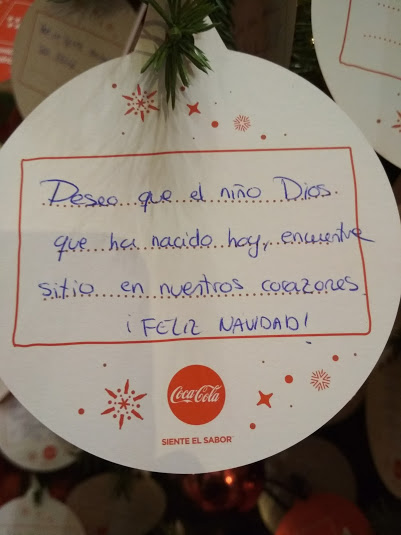 Deseo que el niño Dios.
que ha nacido hoy, encuentre
sitio en nuestros corazones.
¡FELIZ NAVIDAD!
Coca-Cola
SIENTE EL SABOR